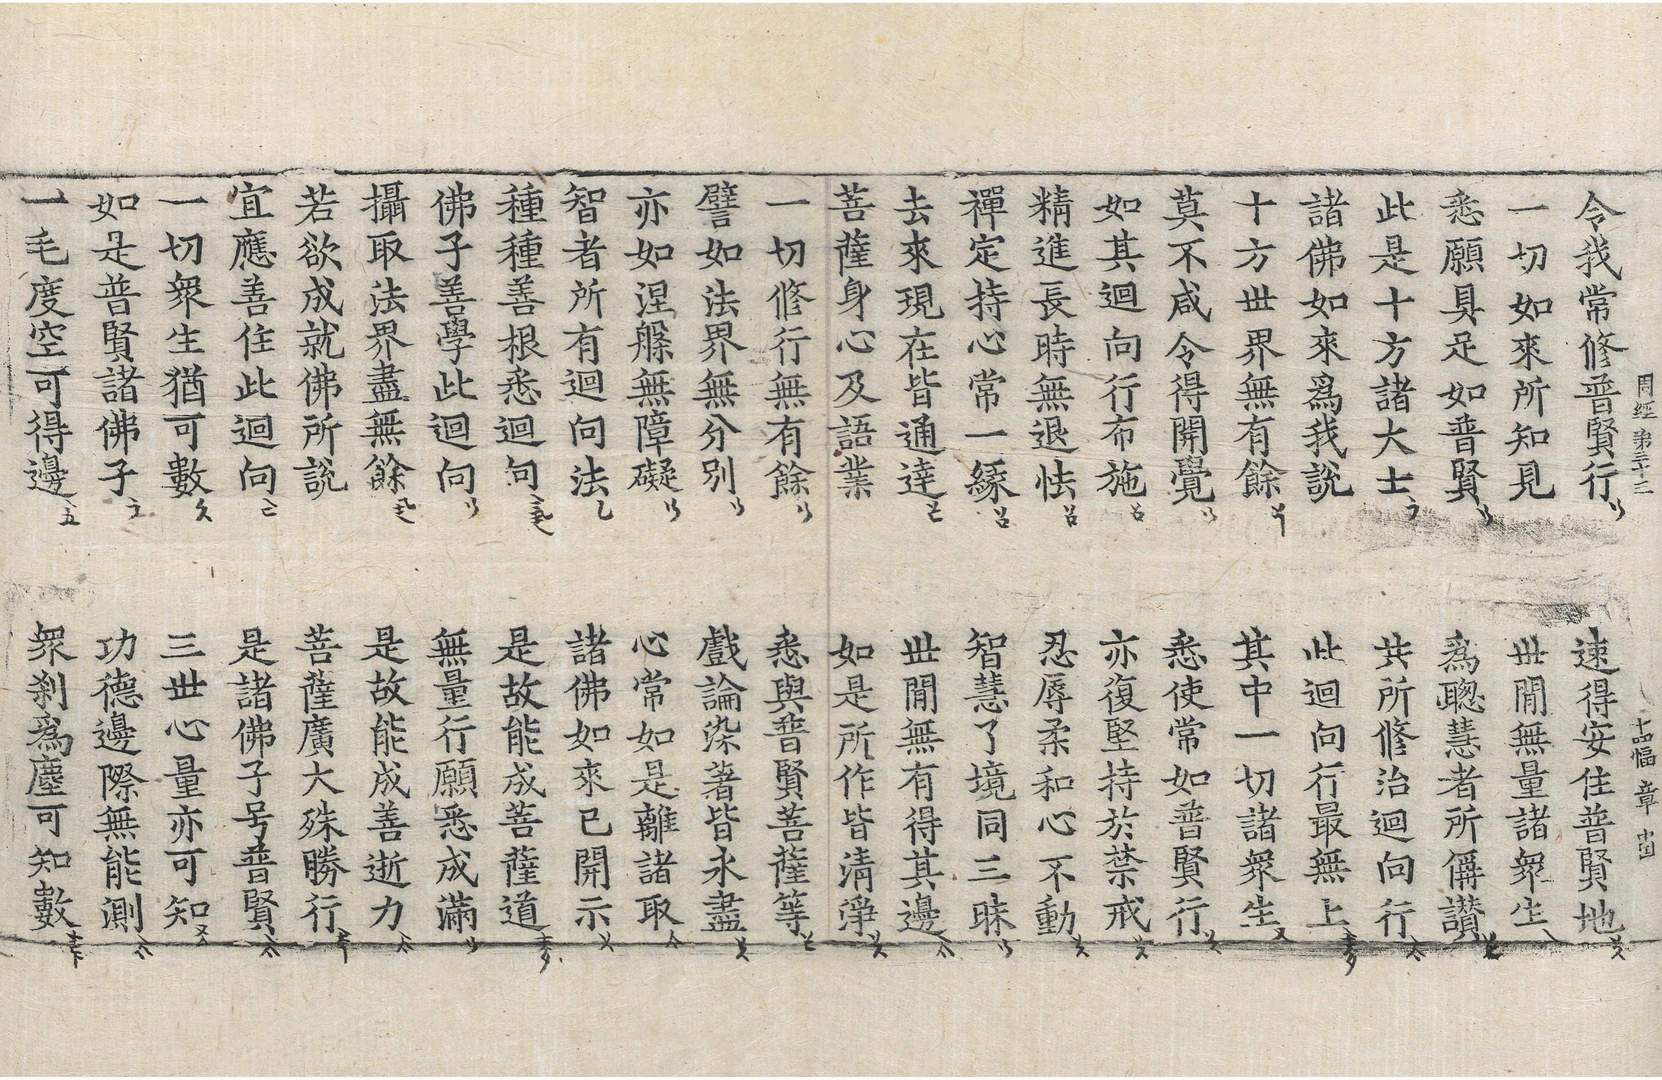 令我常修普賢行 速得安住普賢地
周經 第三十三 十四幅 章
一切如來所知見 世間無量諸衆生
悉願具足如普賢 爲聰慧者所偁讃
此是十方諸大士 共所修治迴向行
諸佛如來爲我說 此迴向行最無上
十方世界無有餘 其中一切諸衆生
莫不咸令得開覺 悉使常如普賢行
如其迴向行布施 亦復堅持於禁戒
精進長時無退怯 忍辱柔和心不動
禪定持心常一緣 智慧了境同三昧
去來現在皆通達 世間無有得其邊
菩薩身心及語業 如是所作皆清淨
一切修行無有餘 悉與普賢菩薩等
譬如法界無分別 戲論染著皆永盡
亦如涅槃無障礙 心常如是離諸取
智者所有迴向法 諸佛如來已開示
種種善根悉迴向 是故能成菩薩道
佛子善學此迴向 無量行願悉成滿
攝取法界盡無餘 是故能成善逝力
若欲成就佛所說 菩薩廣大殊勝行
宜應善住此迴向 是諸佛子号普賢
一切衆生猶可數 三世心量亦可知
如是普賢諸佛子 功德邊際無能測
一毛度空可得邊 衆刹爲塵可知數